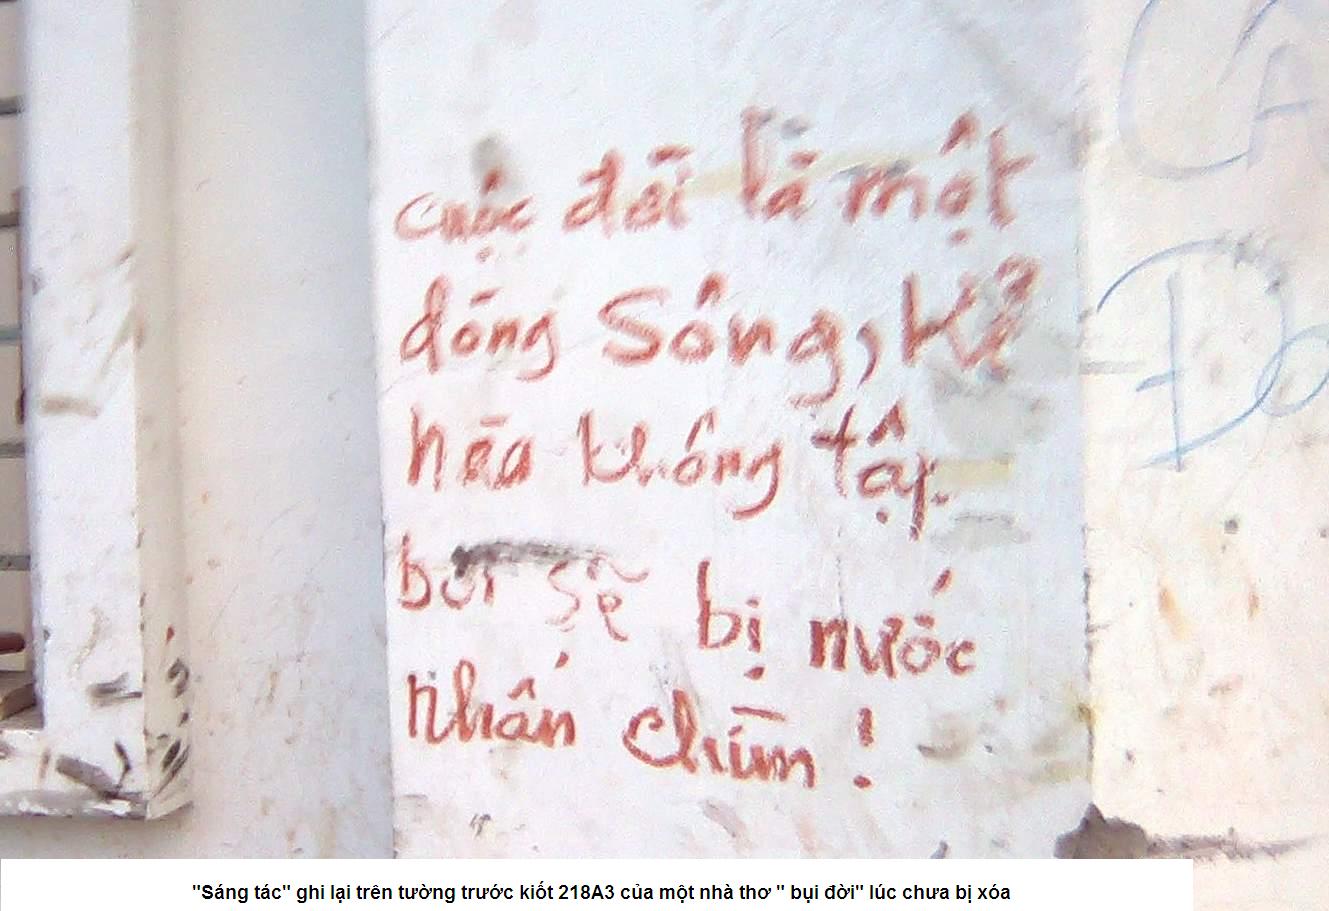 cuộc đời là một
dòng Sông, Kẻ
nào không tập
bơi sẽ bị nước
nhấn chìm !
CA
Do
"Sáng tác" ghi lại trên tường trước kiốt 218A3 của một nhà thơ " bụi đời" lúc chưa bị xóa